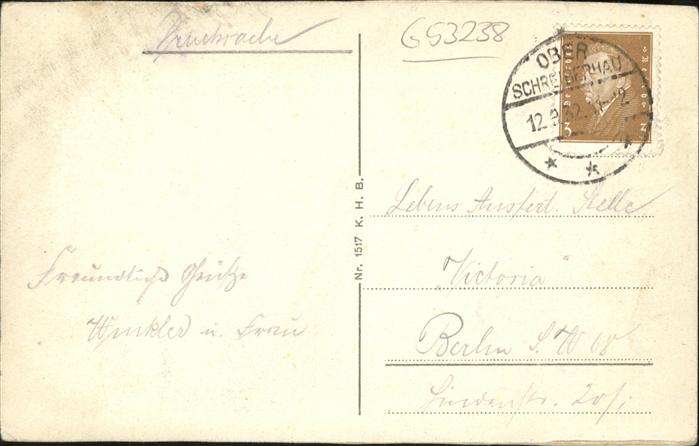 Drucksache
G53238
OBER
SCHREIBERHAU
12.9.32.
3
Nr. 1517 K. H. B.
Freundliche Grüße
Winkler u. Frau
Lebens Stelle
„Victoria“
Berlin S.W 68
Lindenstr.